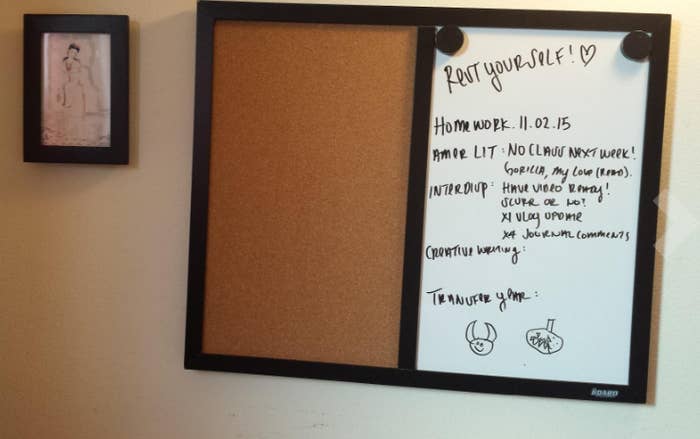 REST YOURSELF! ♡
HOMEWORK. 11.02.15
AMER LIT: NO CLASS NEXT WEEK!
GORILLA, MY LOVE (READ).
INTERDISIP: HAVE VIDEO READY!
SLURR OR NO?
X1 VLOG UPDATE
X4 JOURNAL COMMENTS
CREATIVE WRITING:
TRANSFER YEAR:
BOARD